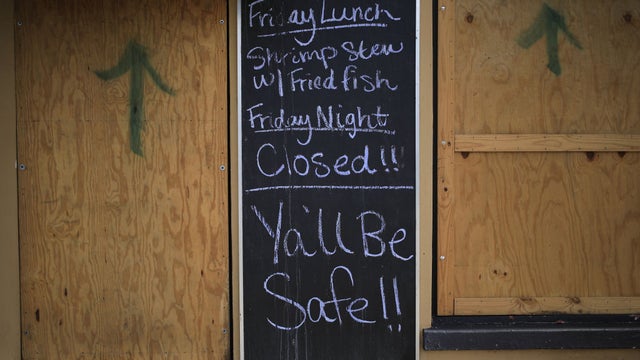 Friday Lunch
Shrimp Stew
w/ Fried fish
Friday Night
Closed!!
Ya'll Be
Safe!!